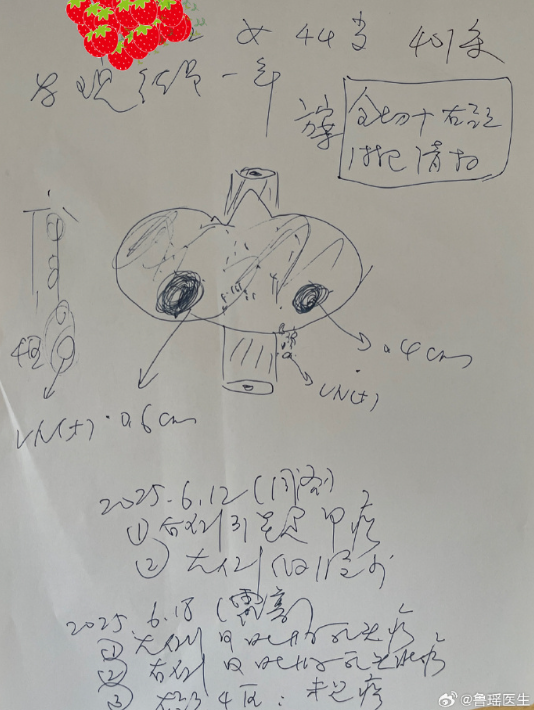 女 44岁 407床
发现结节一年
方案 全切+右颈
淋巴清扫
4区
LN(+) 0.6cm
0.4cm
LN(+)
2025.6.12
① 右侧 甲癌
② 左侧
2025.6.18
① 左侧 甲状腺乳头癌
② 右侧 甲状腺乳头状癌
③ 4区:未见癌
@鲁瑶医生